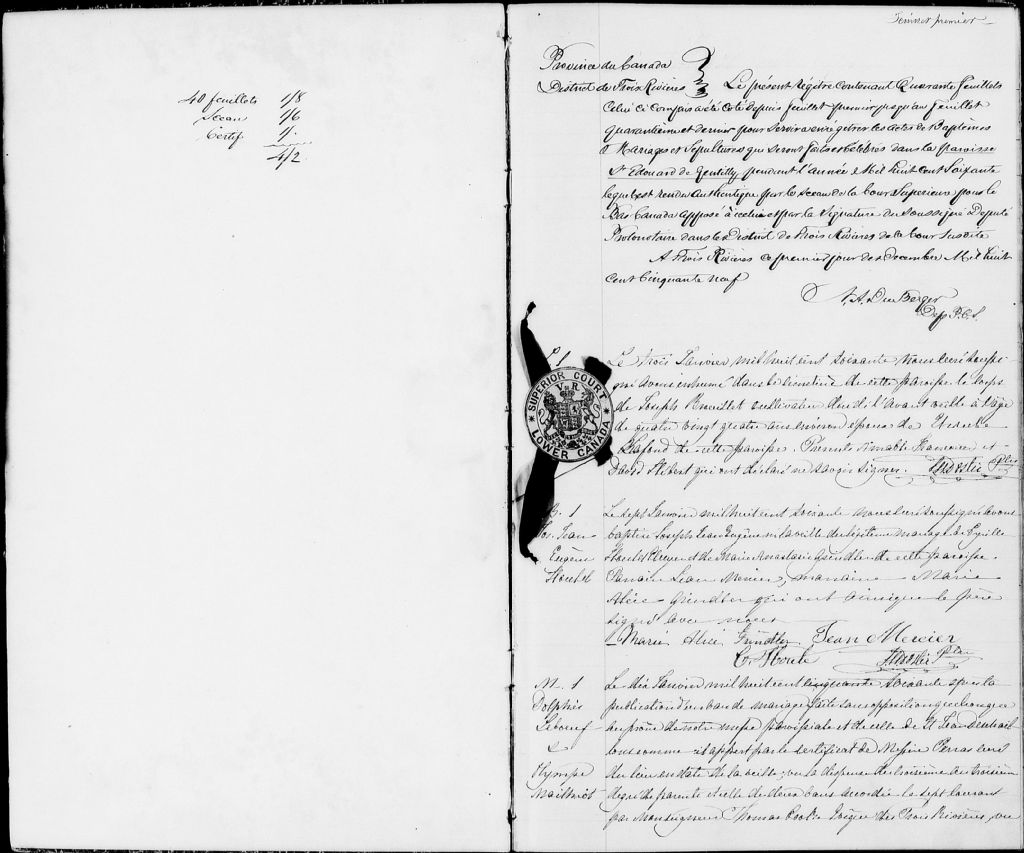 40 feuillets 1/8
Sceau 1/6
Certif 1/.
4/2.
Feuillet premier
Province du Canada
District de Trois Rivières
Le présent Régistre contenant Quarante feuillets
Celui ci compris a été coté depuis feuillet premier jusqu'au feuillet
quarantième et dernier pour servir à enrégistrer les actes de Baptêmes
Mariages et Sépultures qui seront faits et célébrés dans la paroisse
St Edouard de Gentilly pendant l'année Mil huit cent Soixante
lequel est rendu authentique par le Sceau de la Cour Supérieure pour le
Bas Canada apposé à icelui et par la Signature du Soussigné Député
Protonotaire dans le District de Trois Rivières de la Cour Susdite
A Trois Rivières ce premier jour de Décembre Mil huit
cent Cinquante neuf
Dep P.C.S.
S 1
SUPERIOR COURT
V R
LOWER CANADA
Le trois Janvier mil huit cent soixante Nous curé soussi-
gné avons inhumé dans le cimetière de cette paroisse le corps
de Joseph cultivateur décédé l'avant veille à l'âge
de quatre vingt quatre ans environ époux de
Lafond de cette paroisse. Présents Aimable et
David Hébert qui ont déclaré ne savoir signer. Ptre
B. 1
Jos. Jean
Eugène
Le sept Janvier mil huit cent soixante nous curé soussigné avons
baptisé Joseph Jean Eugène né la veille du légitime mariage de Cyrille
et de Marie Anastasie Grindler de cette paroisse.
Parrain Jean Mercier, marraine Marie
Alice Grindler qui ont ainsi que le père
signé avec nous
Marie Alice Grindler Jean Mercier
Ptre
M. 1
Dolphis
Lebœuf
&
Olympe
Mailhiot
Le dix Janvier mil huit cent cinquante soixante après la
publication d'un ban de mariage faite sans opposition quelconque
au prône de notre messe paroissiale et de celle de St Jean
comme il appert par le certificat de Messire curé
du lieu en date de la veille; vu la dispense du troisième au troisième
degré de parenté et celle de deux bans accordée le sept courant
par Monseigneur Thomas Cooke Evêque des Trois Rivières, vu